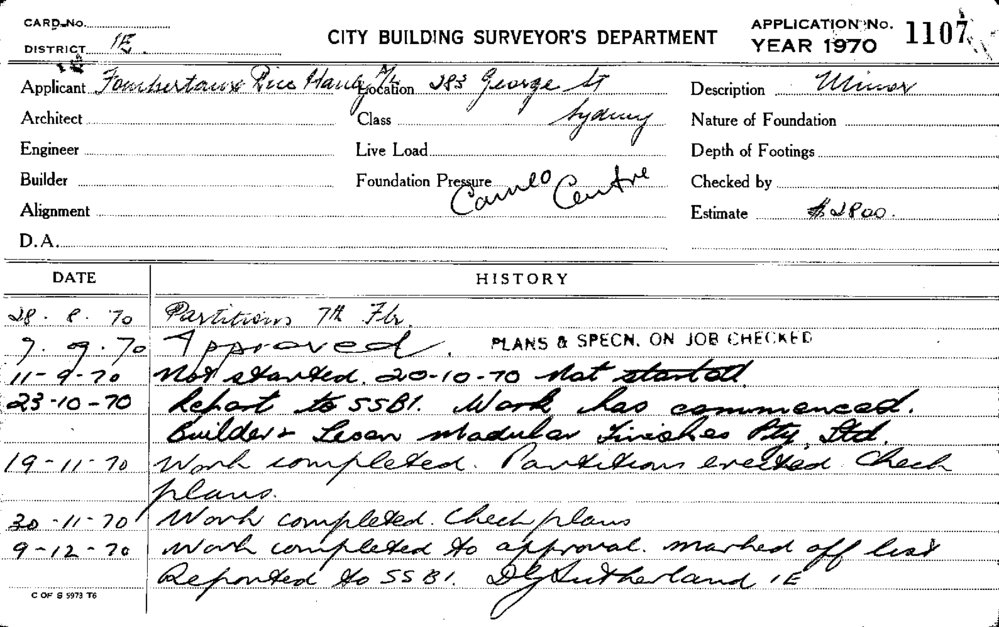 CARD No.
DISTRICT 1E
CITY BUILDING SURVEYOR'S DEPARTMENT
APPLICATION No. 1107
YEAR 1970
Applicant Rice Location 283 George St
Description Minor
Architect
Class Sydney
Nature of Foundation
Engineer
Live Load
Depth of Footings
Builder
Foundation Pressure
Cameo Centre
Checked by
Alignment
Estimate $2800.
D.A.
DATE HISTORY
28. 8. 70 Partitions 7th Flr.
7. 9. 70 Approved. PLANS & SPECN. ON JOB CHECKED
11-9-70 Not started. 20-10-70 Not started
23-10-70 Report to SSBI. Work has commenced.
Builder Lesan Modular Finishes Pty. Ltd.
19-11-70 Work completed. Partitions erected. Check
plans.
30-11-70 Work completed. Check plans
9-12-70 Work completed to approval. marked off list
Reported to SSBI. DG Sutherland 1E
C OF S 5973 T6